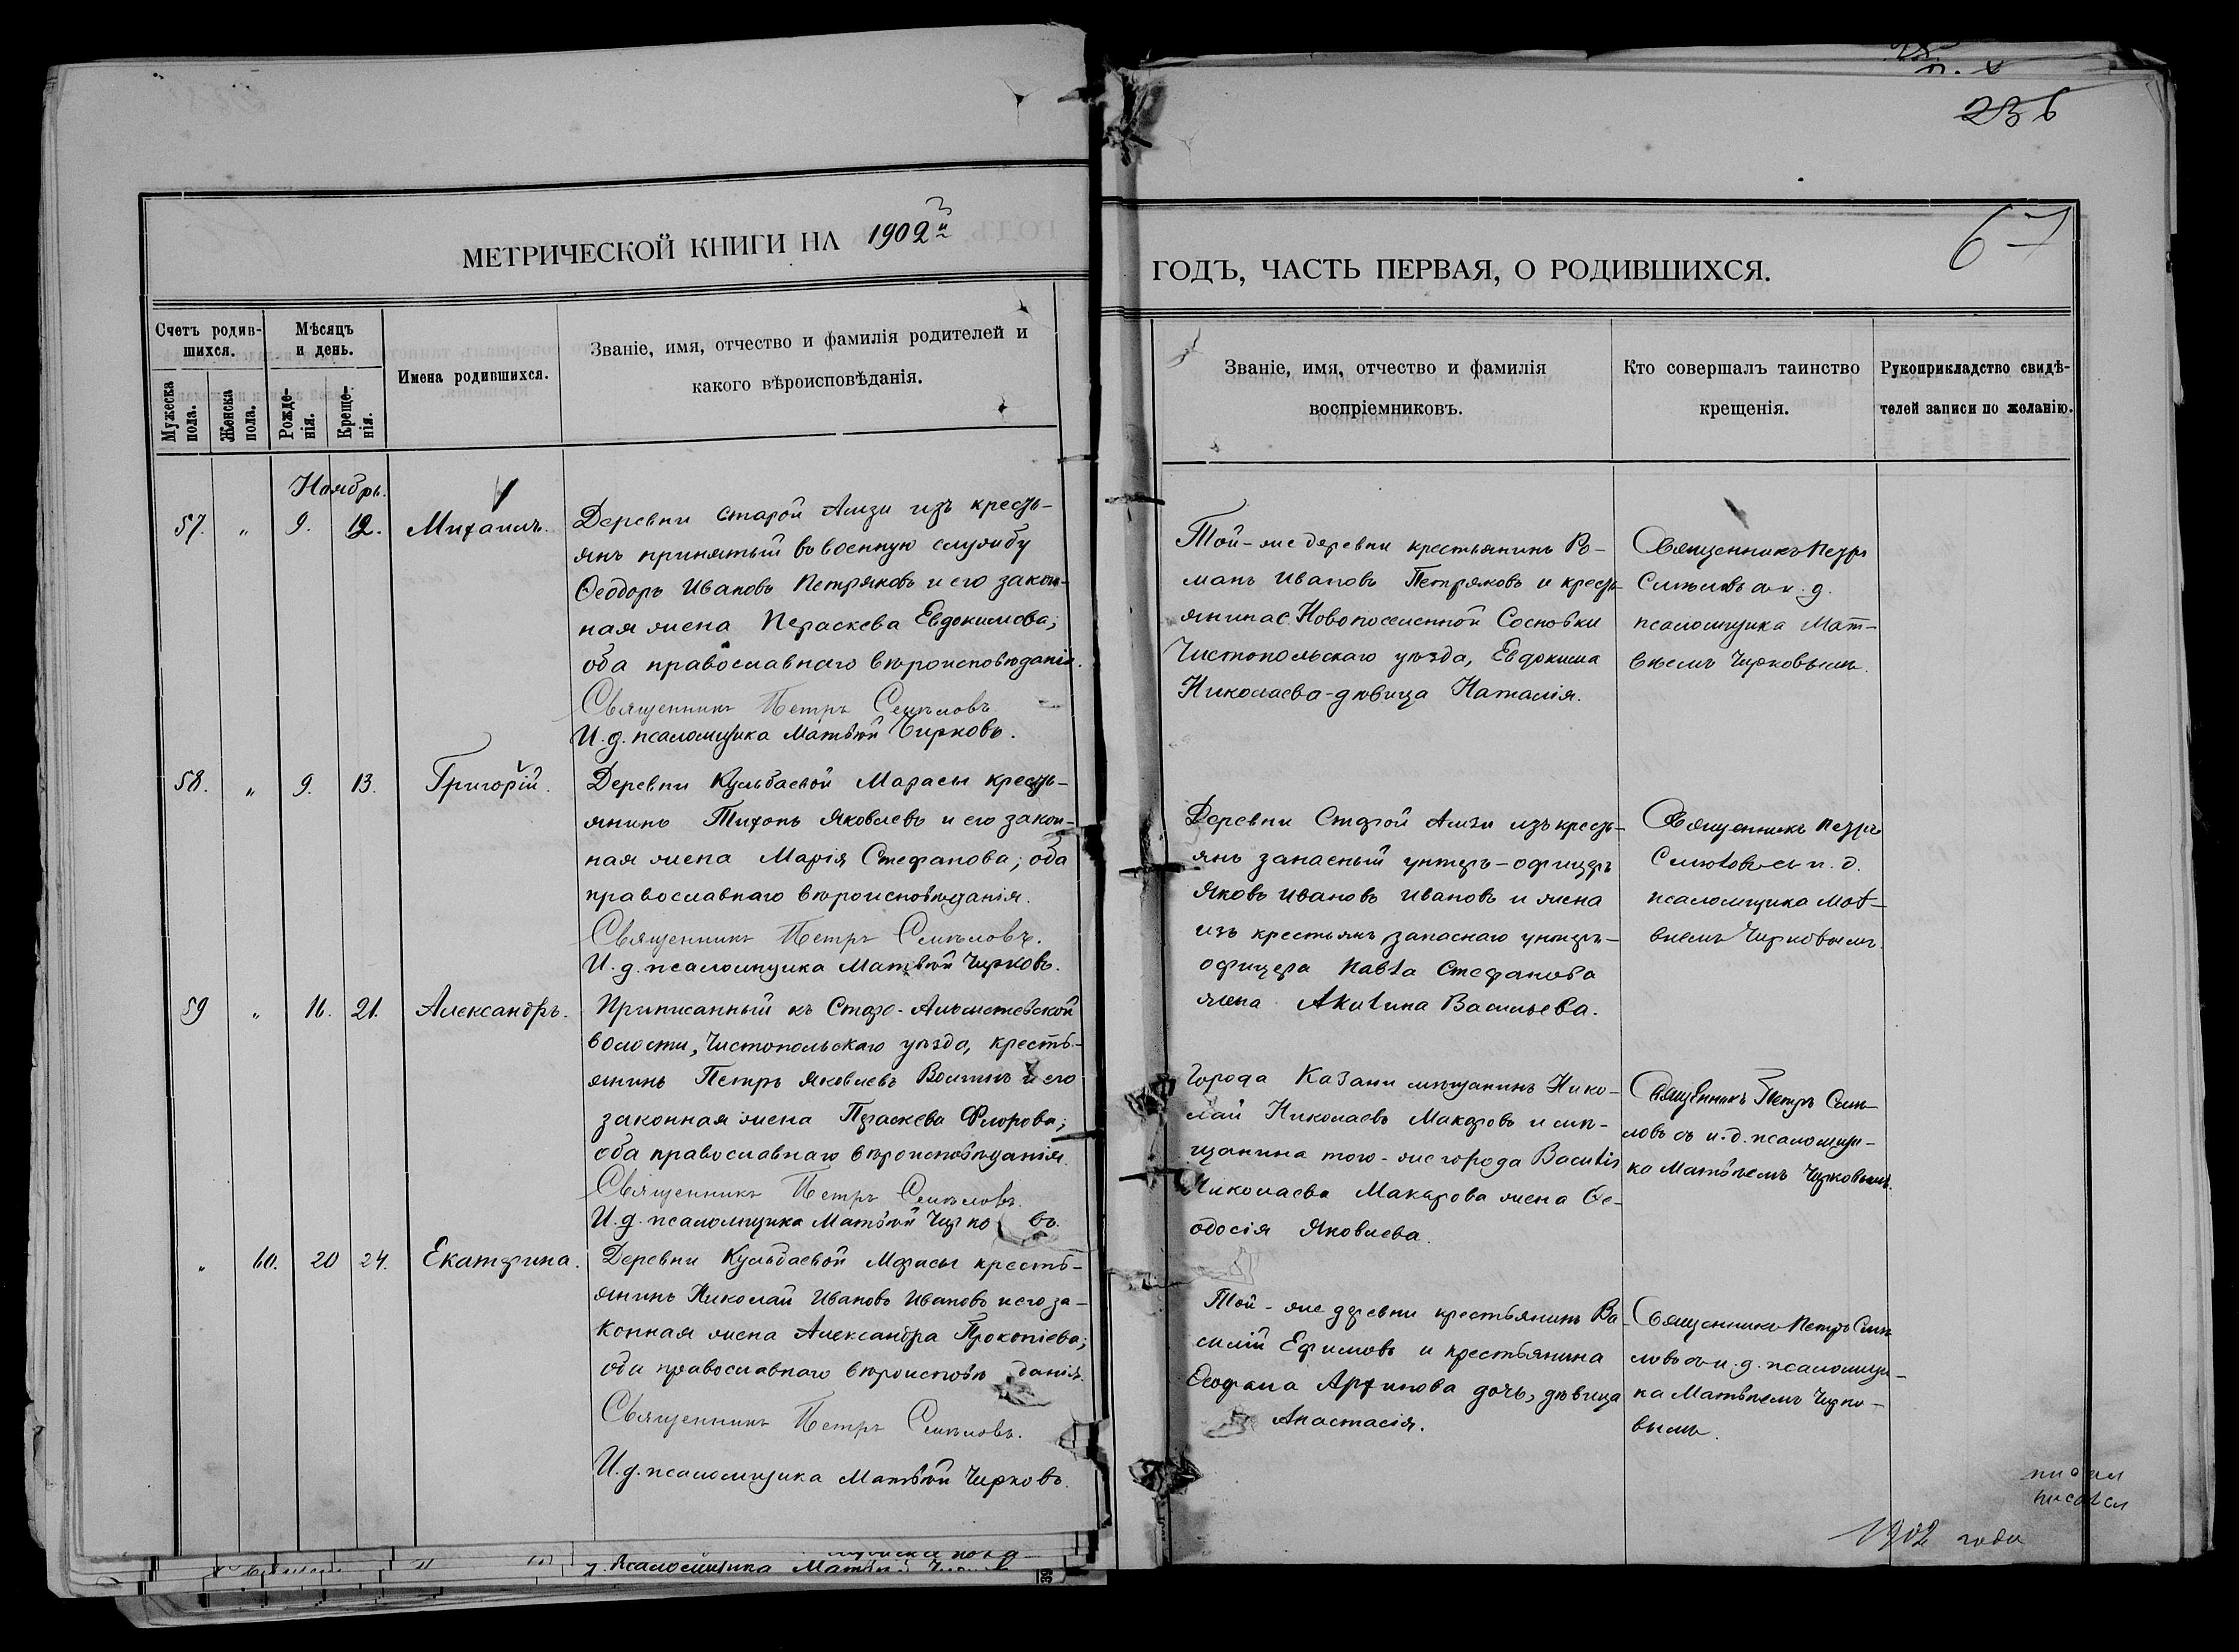 236
67
МЕТРИЧЕСКОЙ КНИГИ НА 1902й
ГОДЪ, ЧАСТЬ ПЕРВАЯ, О РОДИВШИХСЯ.
Счетъ родив-
шихся.
Мужеска пола.
Женска пола.
Мѣсяцъ
и день.
Рожде-
нія.
Креще-
нія.
Имена родившихся.
Званіе, имя, отчество и фамилія родителей и
какого вѣроисповѣданія.
Званіе, имя, отчество и фамилія
воспріемниковъ.
Кто совершалъ таинство
крещенія.
Рукоприкладство свидѣ-
телей записи по желанію.
Ноябрь.
57. " 9. 12. Михаилъ.
Деревни Старой Амзи изъ кресть-
янъ принятый въ военную службу
Ѳеодоръ Ивановъ Петряковъ и его закон-
ная жена Параскева Евдокимова;
оба православнаго вѣроисповѣданія.
Священникъ Петръ Смѣловъ
И. д. псаломщика Матвѣй Чирковъ.
Той-же деревни крестьянинъ Ро-
манъ Ивановъ Петряковъ и кресть-
янина с. Новопоселенной Сосновки
Чистопольскаго уѣзда, Евдокима
Николаева-дѣвица Наталія.
Священникъ Петръ
Смѣловъ съ и. д.
псаломщика Мат-
вѣемъ Чирковымъ.
58. " 9. 13. Григорій.
Деревни Кульбаевой Марасы кресть-
янинъ Тихонъ Яковлевъ и его закон-
ная жена Марія Стефанова; оба
православнаго вѣроисповѣданія.
Священникъ Петръ Смѣловъ.
И. д. псаломщика Матвѣй Чирковъ.
Деревни Старой Амзи изъ кресть-
янъ запасный унтеръ-офицеръ
Яковъ Ивановъ Ивановъ и жена
изъ крестьянъ, запаснаго унтеръ-
офицера Павла Стефанова
жена Акилина Васильева.
Священникъ Петръ
Смѣловъ съ и. д.
псаломщика Мат-
вѣемъ Чирковымъ.
59 " 16. 21. Александръ.
Приписанный къ Старо-Альметевской
волости, Чистопольскаго уѣзда, кресть-
янинъ Петръ Яковлевъ Волгинъ и его
законная жена Параскева Флорова;
оба православнаго вѣроисповѣданія.
Священникъ Петръ Смѣловъ.
И. д. псаломщика Матвѣй Чирковъ.
Города Казани мѣщанинъ Нико-
лай Николаевъ Макаровъ и мѣ-
щанина того-же города Василія
Николаева Макарова жена Ѳе-
одосія Яковлева.
Священникъ Петръ Смѣ-
ловъ съ и. д. псаломщи-
ка Матвѣемъ Чирковымъ.
" 60. 20 24. Екатерина.
Деревни Кульбаевой Марасы кресть-
янинъ Николай Ивановъ Ивановъ и его за-
конная жена Александра Прокопіева;
оба православнаго вѣроисповѣданія.
Священникъ Петръ Смѣловъ.
И. д. псаломщика Матвѣй Чирковъ.
Той-же деревни крестьянинъ Ва-
силій Ефимовъ и крестьянина
Ѳеофана Архипова дочь, дѣвица
Анастасія.
Священникъ Петръ Смѣ-
ловъ съ и. д. псаломщи-
ка Матвѣемъ Чирко-
вымъ.
1902 года
псаломщика Матвѣй